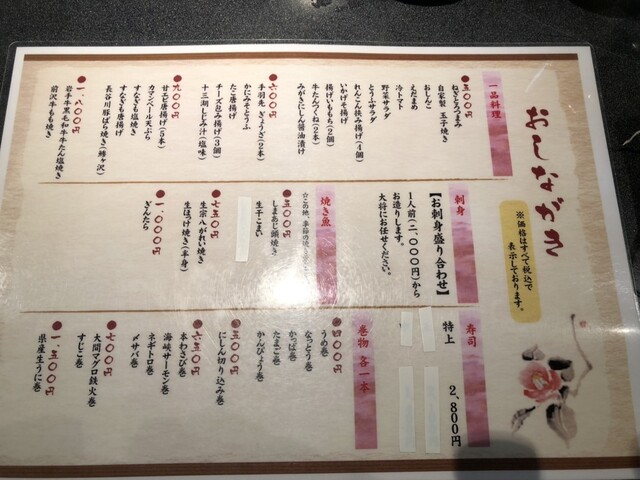 おしながき
※価格はすべて税込で
表示しております。
一品料理
●五〇〇円
ねぎとろつまみ
自家製 玉子焼き
おしんこ
えだまめ
冷トマト
野菜サラダ
とうふサラダ
れんこん挟み揚げ(4個)
いかげそ揚げ
揚げいももち(2個)
牛たんつくね(2本)
みがきにしん醤油漬け
●六〇〇円
手羽先 ぎょうざ(2本)
かにみそとうふ
たこ唐揚げ
チーズ包み揚げ(3個)
十三湖しじみ汁(塩味)
●九〇〇円
甘エビ唐揚げ(5本)
カマンベール天ぷら
すなぎも塩焼き
すなぎも唐揚げ
長谷川豚ばら焼き(鯵ヶ沢)
●一、八〇〇円
岩手牛黒毛和牛牛たん塩焼き
前沢牛もも焼き
刺身
【お刺身盛り合わせ】
1人前(二、〇〇〇円)から
お造りします。
大将にお任せください。
焼き魚
●五〇〇円
しまあじ頭焼き
生干こまい
●七五〇円
生宗八がれい焼き
生ほっけ焼き(半身)
●一、〇〇〇円
ぎんたら
寿司
特上 2,800円
巻物 各一本
●四〇〇円
うめ巻
なっとう巻
かっぱ巻
たまご巻
かんぴょう巻
●五〇〇円
にしん切り込み巻
●六五〇円
本わさび巻
海峡サーモン巻
ネギトロ巻
〆サバ巻
●七〇〇円
大間マグロ鉄火巻
すじこ巻
●一、五〇〇円
県産生うに巻